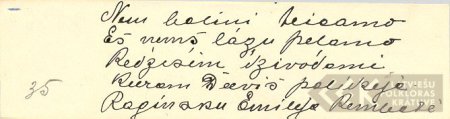 Nem balini teicamo
Es nemš lāgu pelamo
Redzēsim dzivōdami
Kuram Dēvis palikēja
Ragināsku Emilija
35
LATVIEŠU
FOLKLORAS
KRĀTUVE